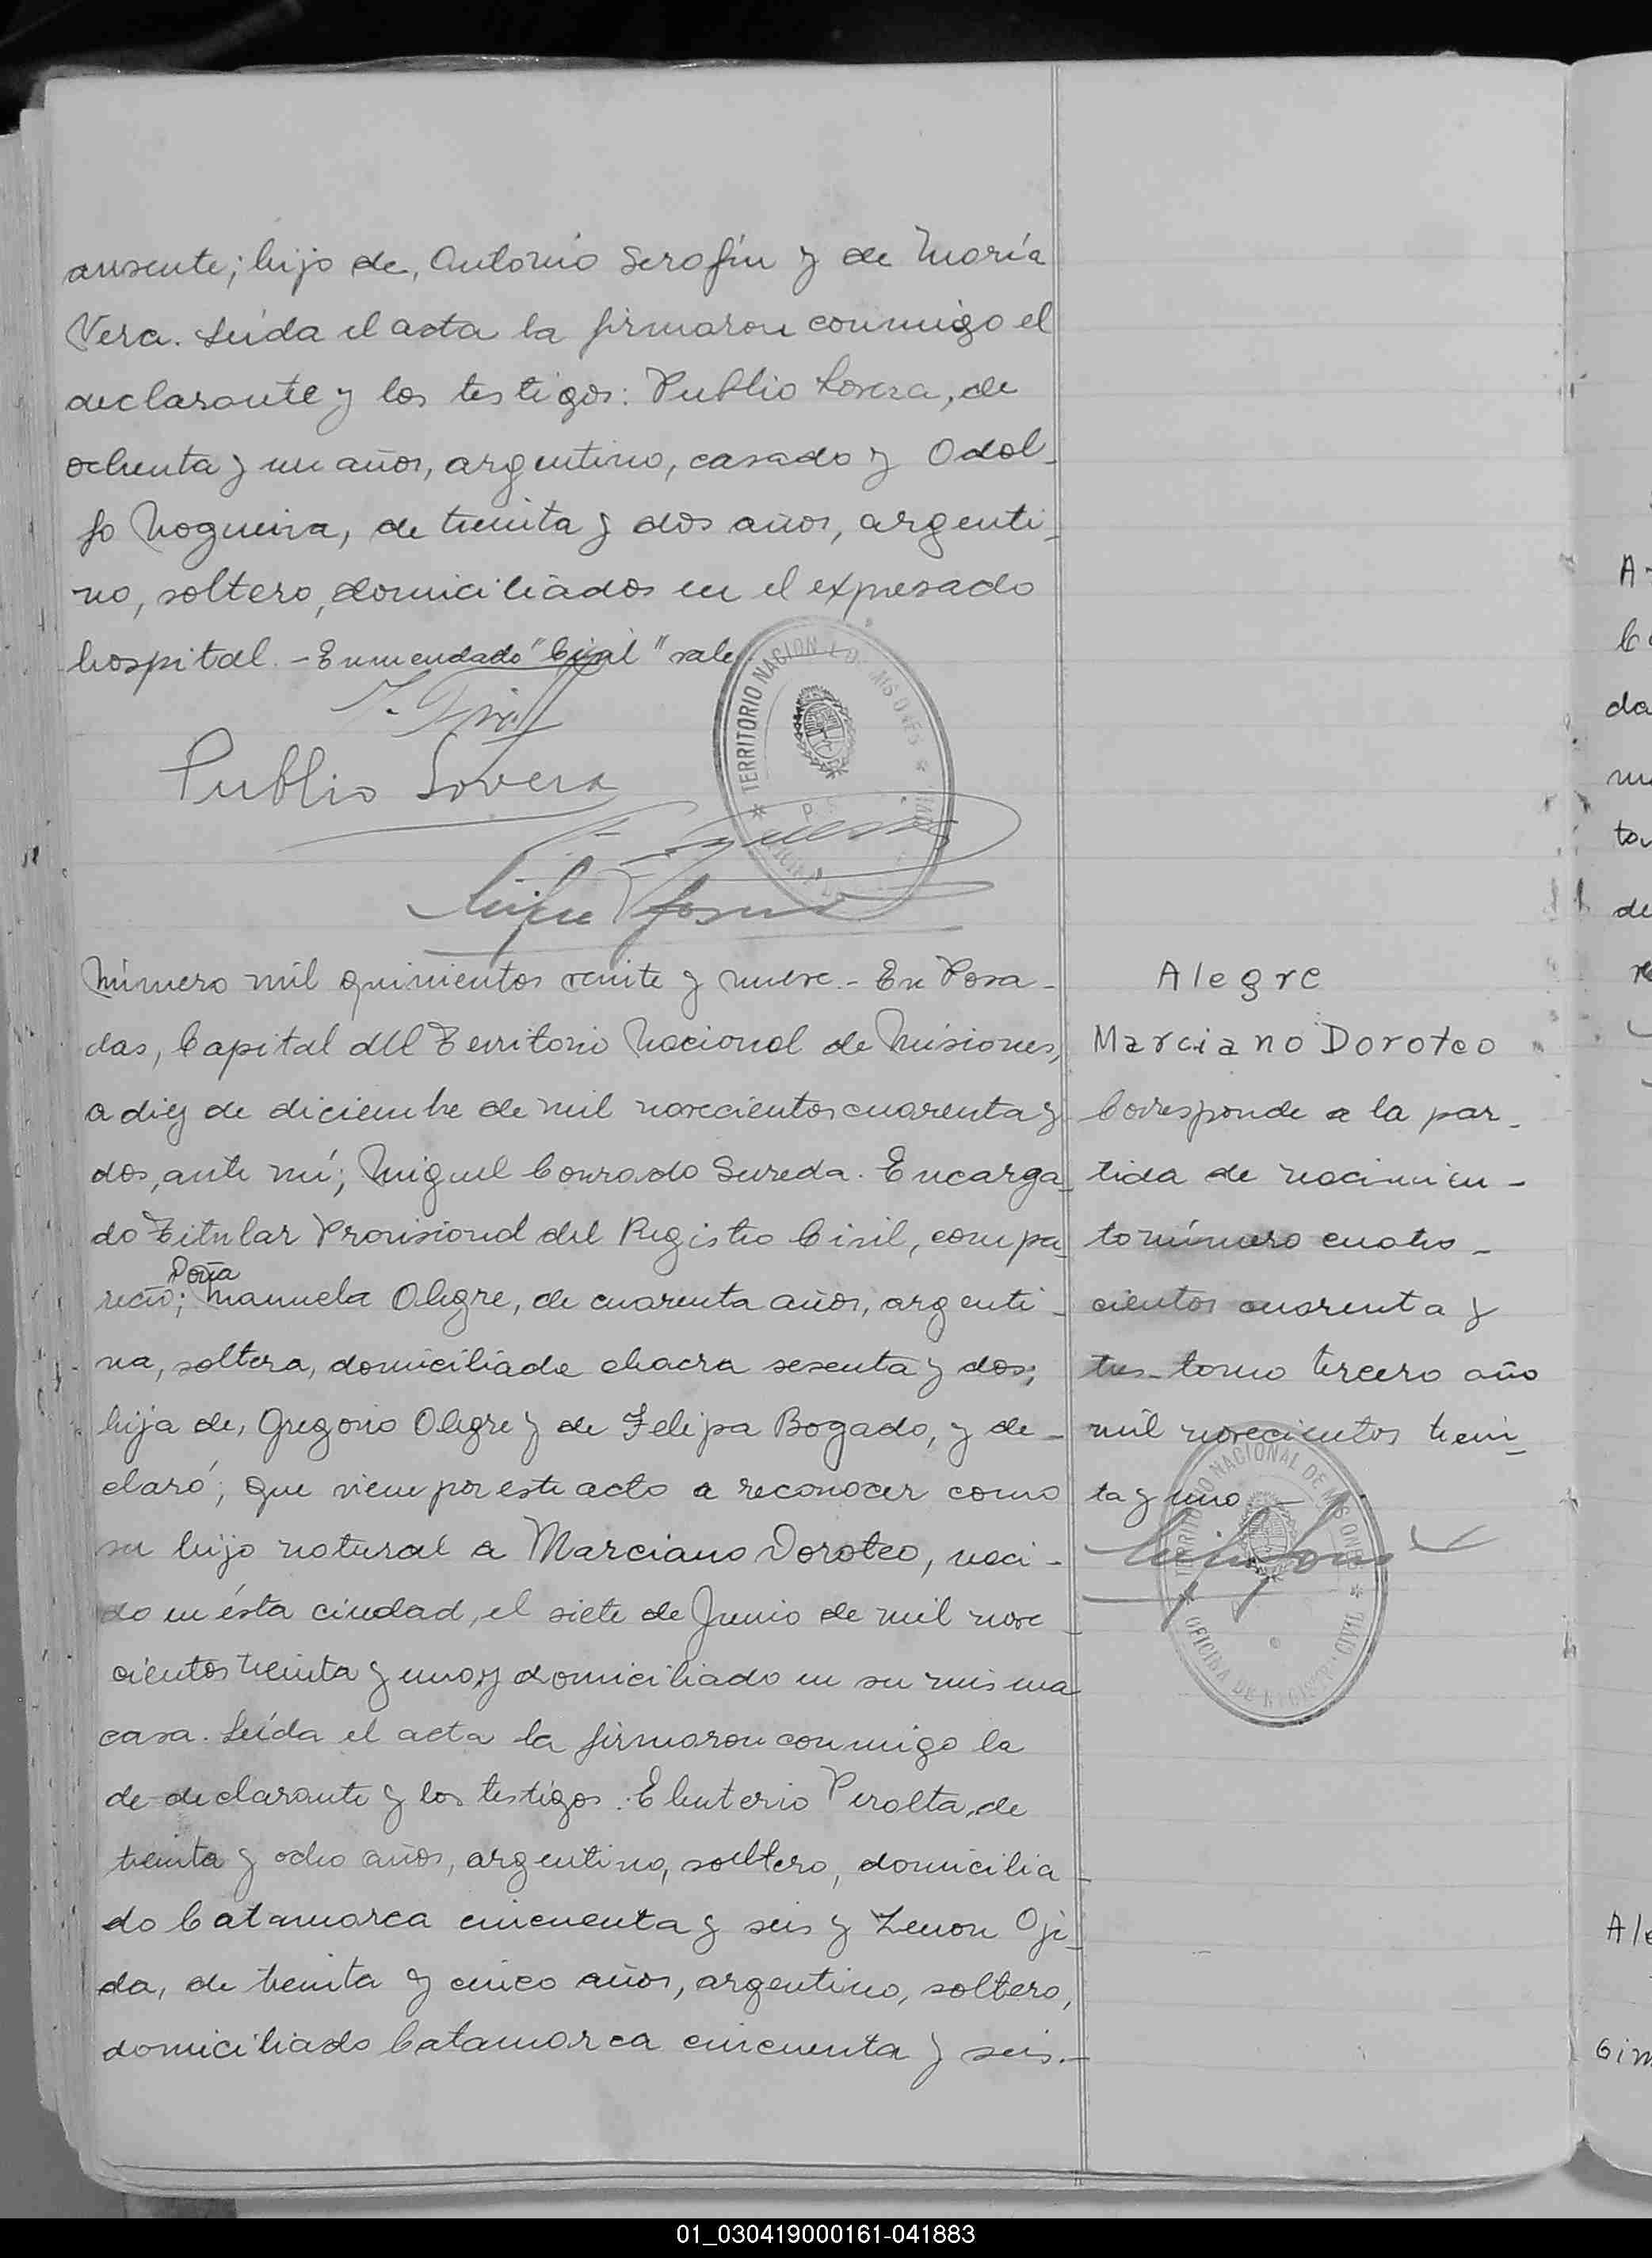 ausente; hijo de, Antonio Serafín y de María
Vera. Leída el acta la firmaron conmigo el
declarante y los testigos: Publio Lovera, de
ochenta y un años, argentino, casado y Odol-
fo Nogueira, de treinta y dos años, argenti-
no, soltero, domiciliados en el expresado
hospital. - Enmendado "Civil" vale
TERRITORIO NACIONAL DE MISIONES
Publio Lovera
Número mil quinientos veinte y nueve.- En Posa-
das, Capital del Territorio Nacional de Misiones,
a diez de diciembre de mil novecientos cuarenta y
dos, ante mí; Miguel Conrado Sureda. Encarga-
do Titular Provisional del Registro Civil, compa-
Doña
reció; Manuela Alegre, de cuarenta años, argenti-
na, soltera, domiciliada chacra sesenta y dos;
hija de, Gregorio Alegre y de Felipa Bogado, y de-
claró; que viene por este acto a reconocer como
su hijo natural a Marciano Doroteo, naci-
do en ésta ciudad, el siete de Junio de mil nove-
cientos treinta y uno, y domiciliado en su misma
casa. Leída el acta la firmaron conmigo la
de declarante y los testigos: Eleuterio Peralta, de
treinta y ocho años, argentino, soltero, domicilia-
do Catamarca cincuenta y seis y Zenon Oje-
da, de treinta y cinco años, argentino, soltero,
domiciliado Catamarca cincuenta y seis.-
Alegre
Marciano Doroteo
Corresponde a la par-
tida de nacimien-
to número cuatro-
cientos cuarenta y
tres tomo tercero año
mil novecientos trein-
ta y uno
TERRITORIO NACIONAL DE MISIONES
OFICINA DE REGISTRO CIVIL
A-
da
de
Ale
Gim
01_030419000161-041883